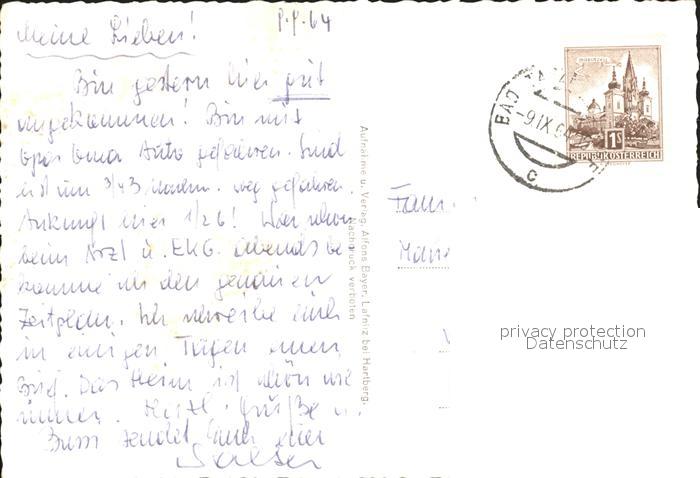 Meine Lieben!
9.9.64
Bin gestern hier gut
angekommen! Bin mit
Opas Auto gefahren. Sind
erst um 3/4 3 weg gefahren.
Ankunft hier 1/2 6! War schon
beim Arzt u. EKG. abends be
komme ich den genauen
Zeitplan. Ich schreibe euch
in einigen Tagen einen
Brief. Das Heim ist schön wie
immer. Herzl. Grüße u.
Bussi sendet Euch
Aufnahme u. Verlag: Alfons Bayer, Lafnitz bei Hartberg.
Nachdruck verboten
BAD
-9.IX.6
C
MARIAZELL
1S
REPUBLIK ÖSTERREICH
Fam.
privacy protection
Datenschutz